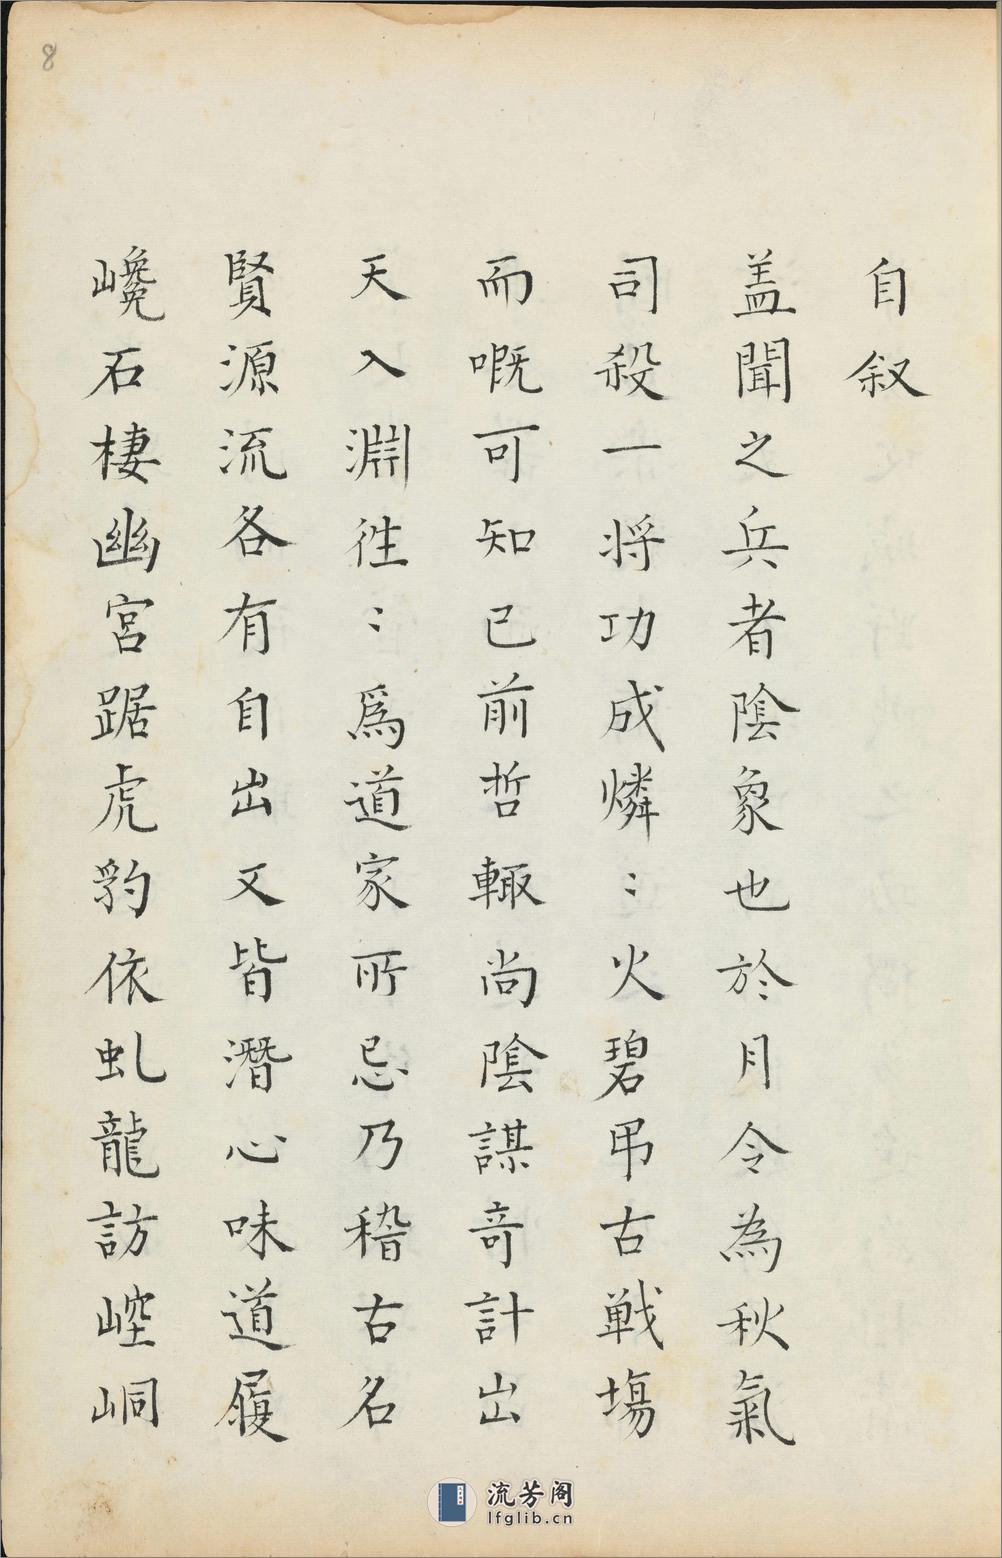 自叙
盖聞之兵者陰象也於月令為秋氣
司殺一将功成燐〻火碧吊古戰塲
而嘅可知已前哲輙尚陰謀竒計出
天入淵徃〻爲道家所忌乃稽古名
賢源流各有自出又皆潛心味道履
巉石棲幽宮踞虎豹依虬龍訪崆峒
8
流芳阁
lfglib.cn